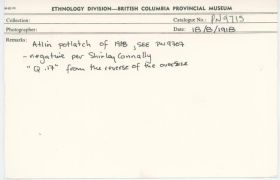 ETHNOLOGY DIVISION—BRITISH COLUMBIA PROVINCIAL MUSEUM
Collection: Catalogue No.: PN9713
Photographer: Date: 18/8/1918
Remarks:
Atlin potlatch of 1918, SEE PN9707
- negative per Shirley Connally
- "Q.17" from the reverse of the oversize